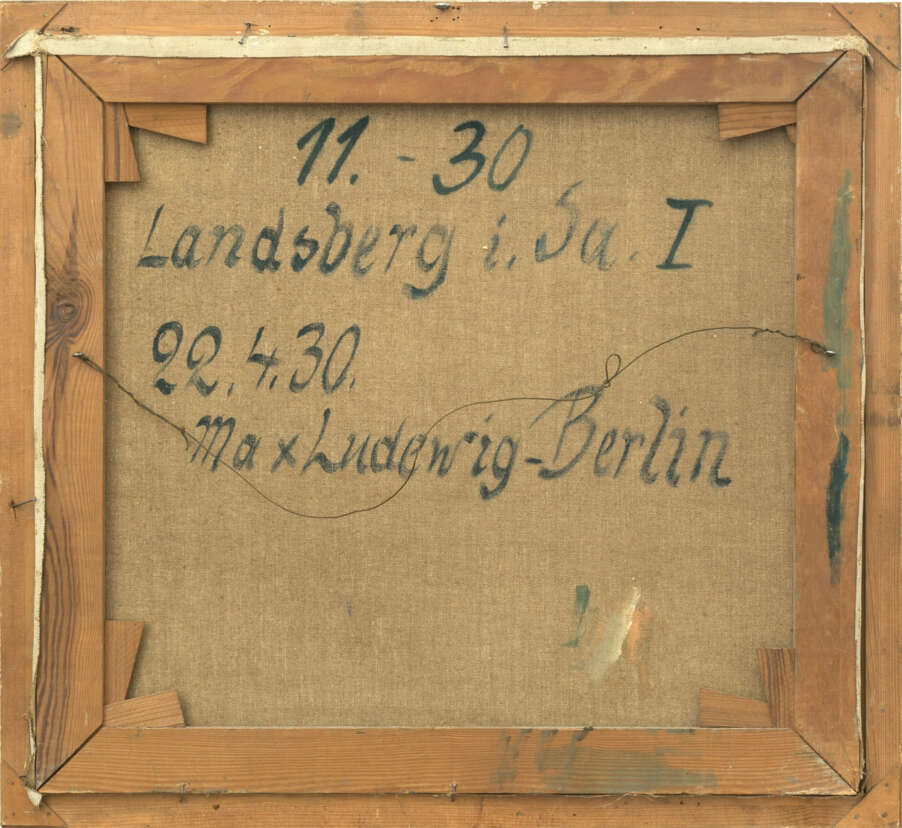 11. - 30
Landsberg i. Sa. I
22.4.30.
Max Ludewig-Berlin